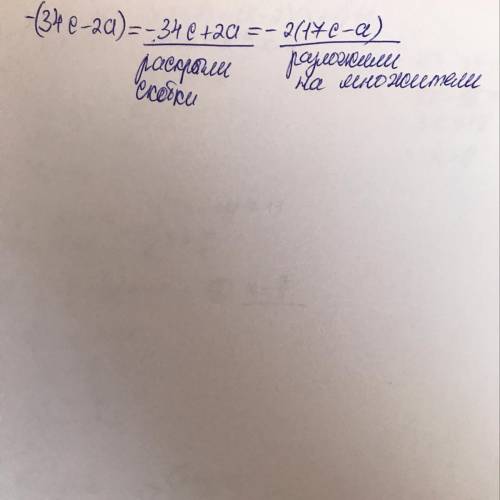 -(34c-2a)=-34c+2a=-2(17c-a)
раскрыли разложили
скобки на множители